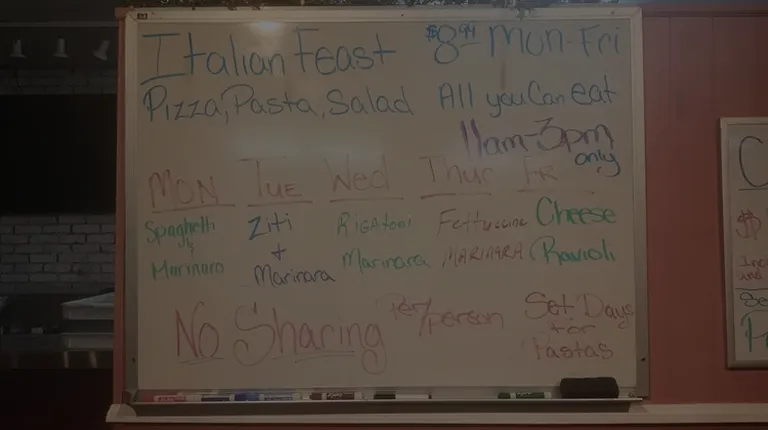 Italian Feast $8.99 Mon-Fri
Pizza, Pasta, Salad All you Can eat
11am-3pm
only
MON TUE Wed Thur Fri
Spaghetti Ziti Rigatoni Fettuccine Cheese
& + Marinara MARINARA Ravioli
Marinara Marinara
No Sharing Per/person Set Days
for
Pastas
C
$
Inc
and